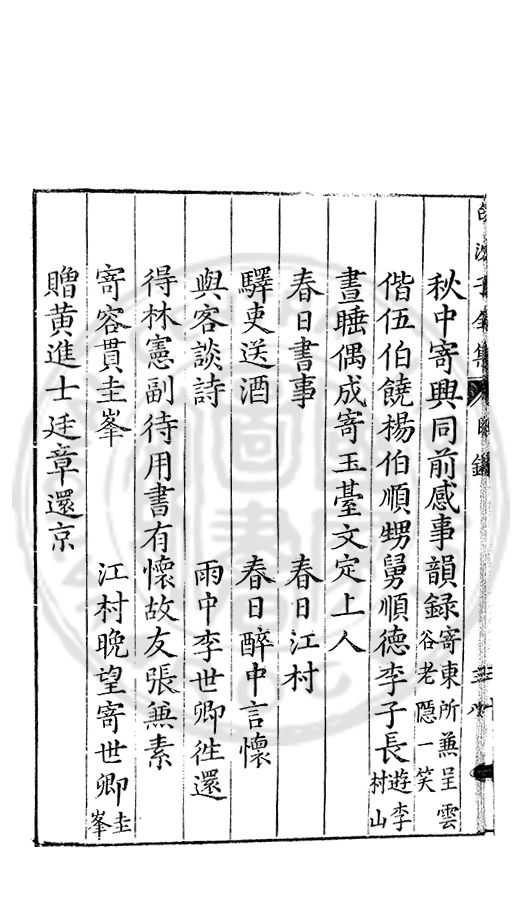 白沙子全集 目錄
秋中寄興同前感事韻録寄東所兼呈雲谷老隱一笑
偕伍伯饒楊伯順甥舅順德李子長遊李村山
晝睡偶成寄玉臺文定上人
春日書事 春日江村
驛吏送酒 春日醉中言懷
與客談詩 雨中李世卿徃還
得林憲副待用書有懷故友張兼素
寄容貫圭峯 江村晚望寄世卿圭峯
贈黃進士廷章還京